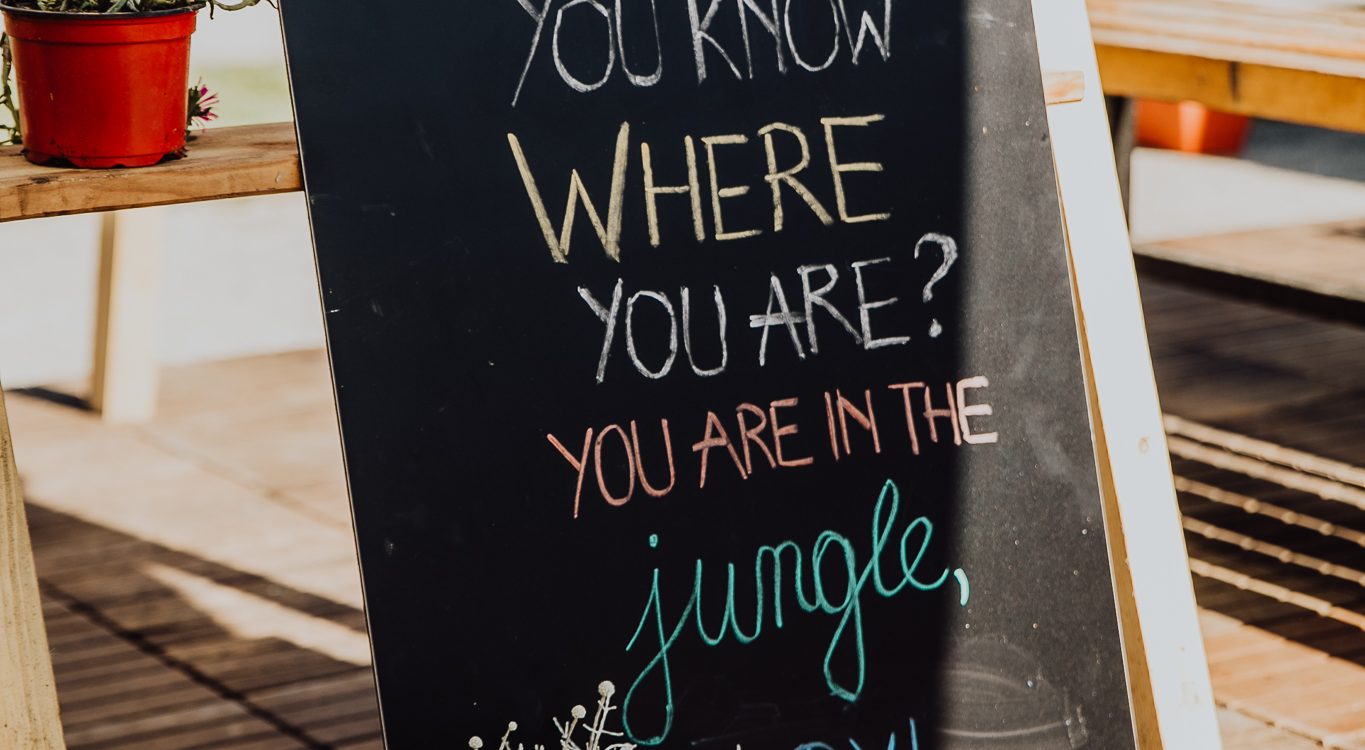 YOU KNOW
WHERE
YOU ARE?
YOU ARE IN THE
jungle,